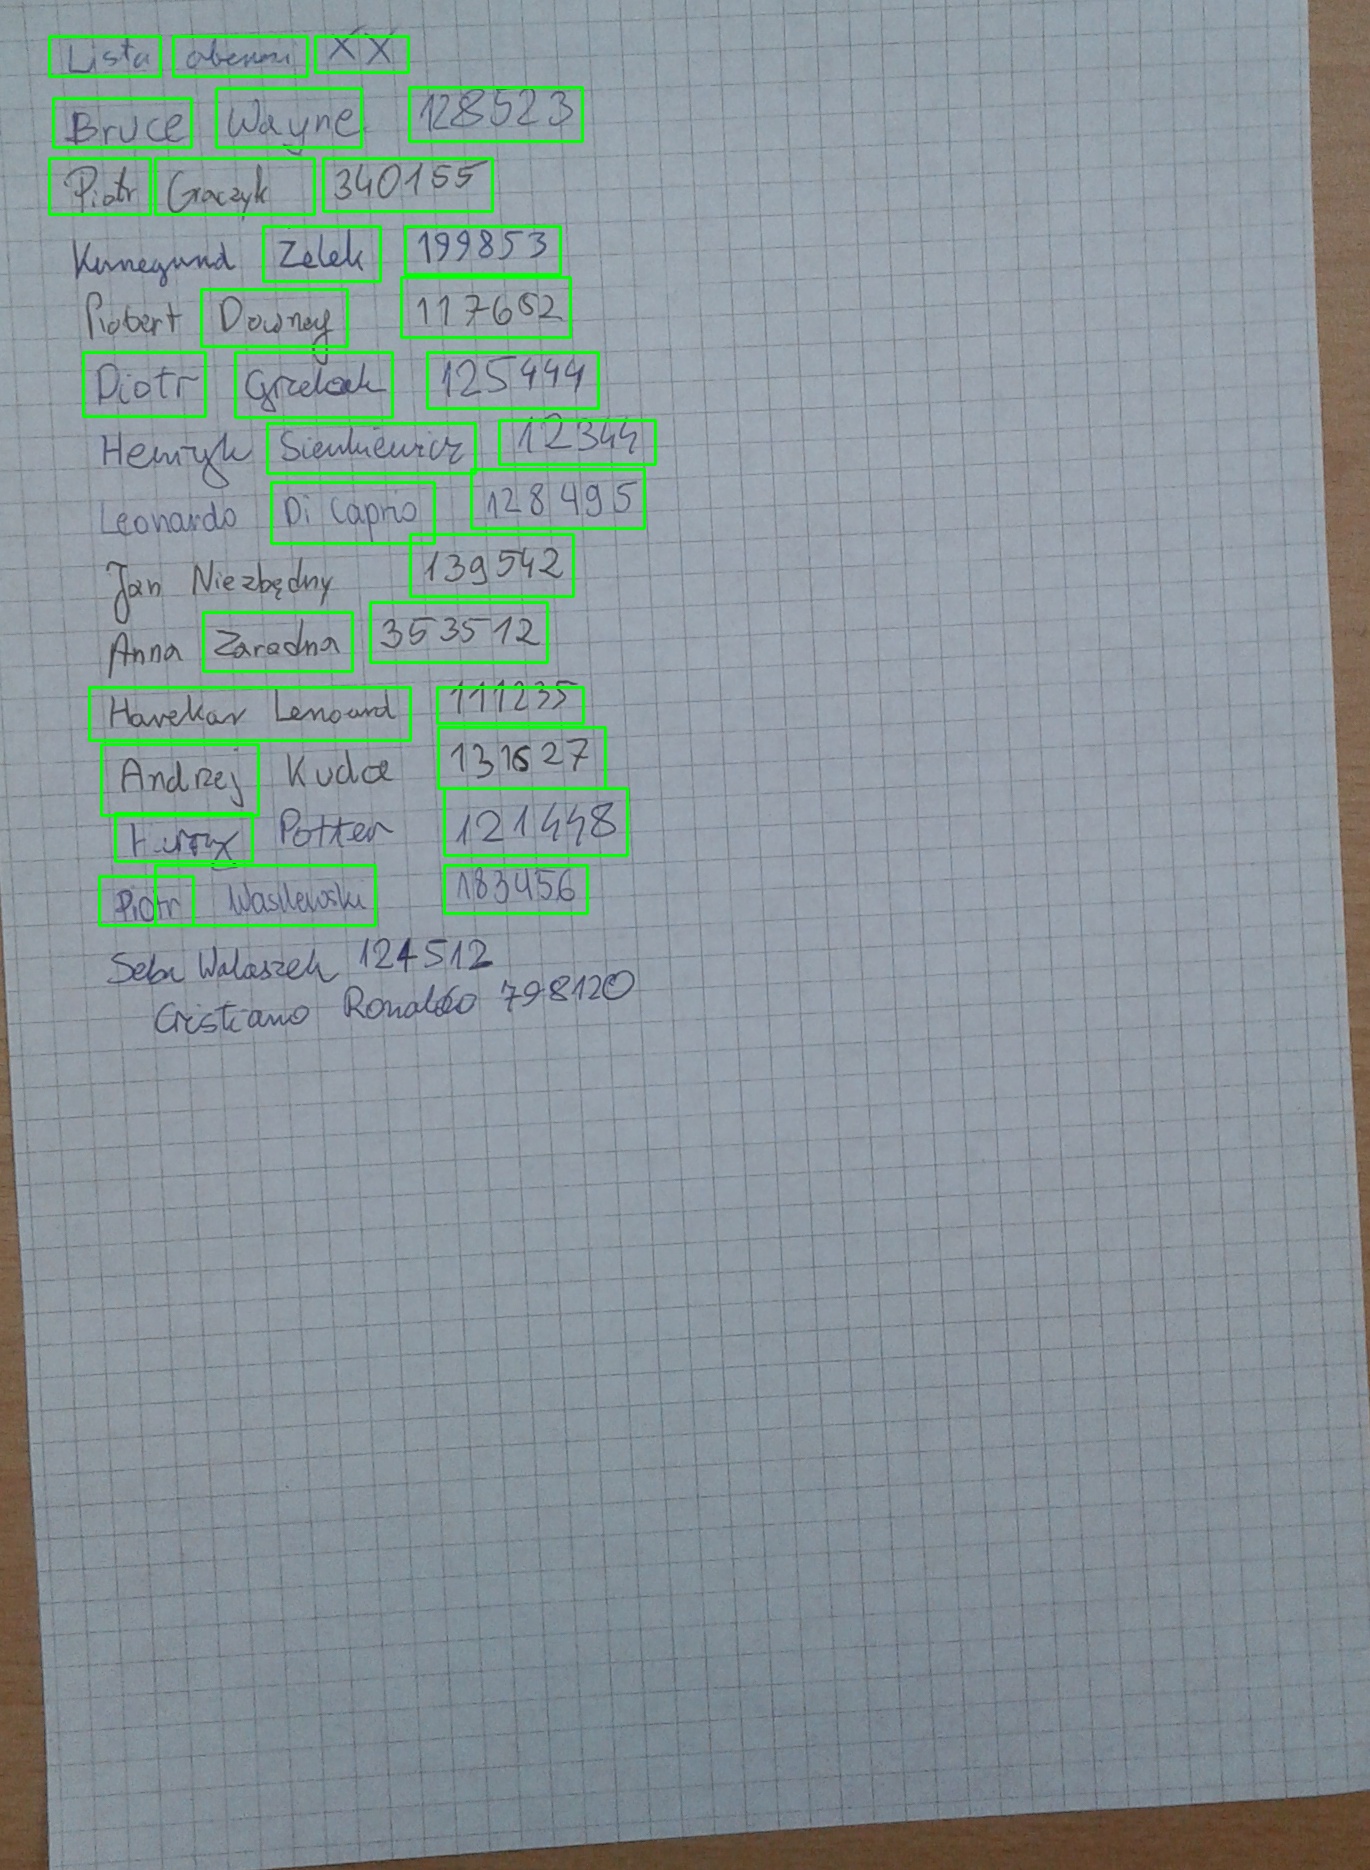 Lista obecności XX
Bruce Wayne 128523
Piotr Graczyk 340155
Kunegund Zelek 199853
Robert Downey 117652
Piotr Grzelak 125444
Henryk Sienkiewicz 12344
Leonardo Di Caprio 128495
Jan Niezbędny 139542
Anna Zaradna 353512
Havekar Lenoard 111235
Andrzej Kudła 131627
Potter 121448
Piotr Wasilewski 183456
Seba Walaszek 124512
Cristiano Ronaldo 798120